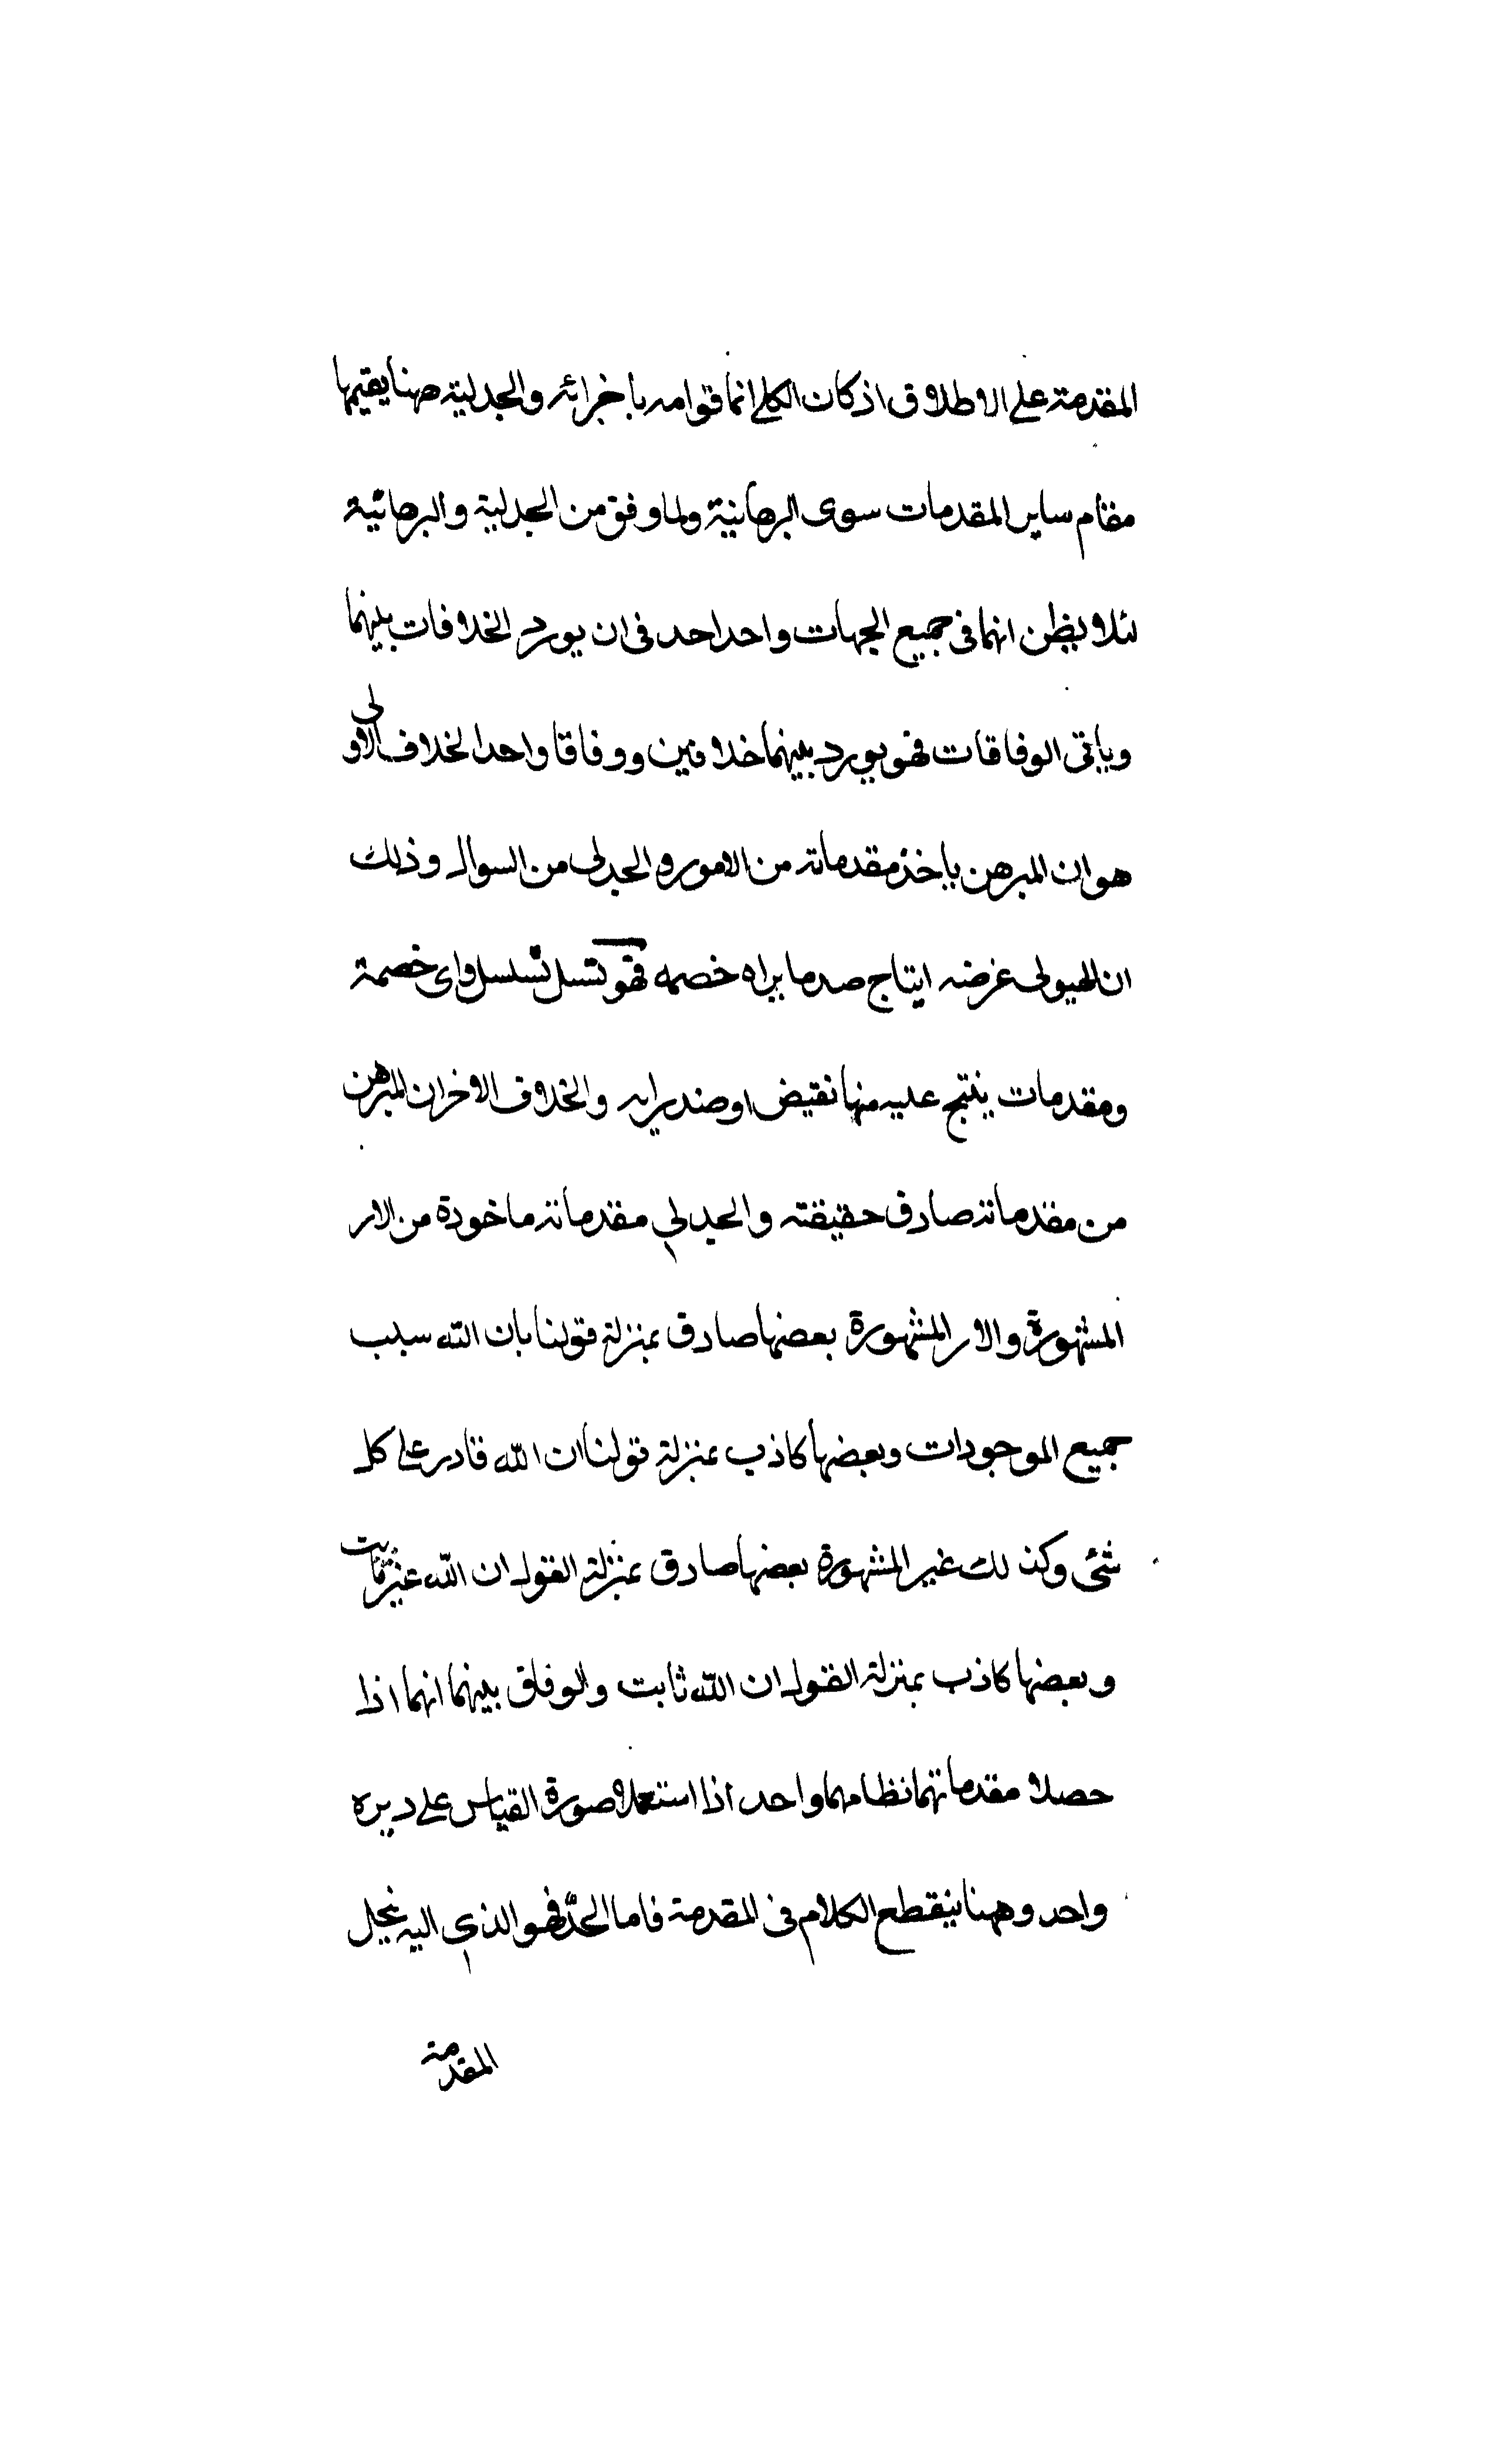 المقدمة على الاطلاق اذ كان الكلى انما قوامه باجزائه والجدلية ههنا يقيمها
مقام ساير المقدمات سوى البرهانية ولما وفق من الجدلية والبرهانية
لئلا يظن انهما فى جميع الجهات واحد احد فى ان يورد الخلافات بينهما
وياتى الوفاقات فهو يورد بينهما خلافين ووفاقا واحدا لخلاف الاولى
هو ان المبرهن ياخذ مقدماته من الامور والجدلى من السوال وذلك
ان الهيولى غرضه انتاج ضد ما يراه خصمه فهو تسلسل واى خصمة
ومقدمات ينتج عليه منها نقيض او ضد يرايه والخلاف الاخر ان المبرهن
من مقدماته صادق حقيقته والجدلي مقدماته ماخوذة من الار
المشهورة والار المشهورة بعضها صادق بمنزلة قولنا بان الله سبب
جميع الموجودات وبعضها كاذب بمنزلة قولنا ان الله قادر على كل
شئى وكذلك غير المشهورة بعضها صادق بمنزلة القول ان الله غير ثابت
وبعضها كاذب بمنزلة القول ان الله ثابت والوفاق بينهما انهما اذا
حصلا مقدماتهما نظامهما واحد اذا استعملا صورة القياس على ديره
واحد وههنا ينقطع الكلام فى المقدمة فاما الحد فهو الذي اليه نحل
المقدمة